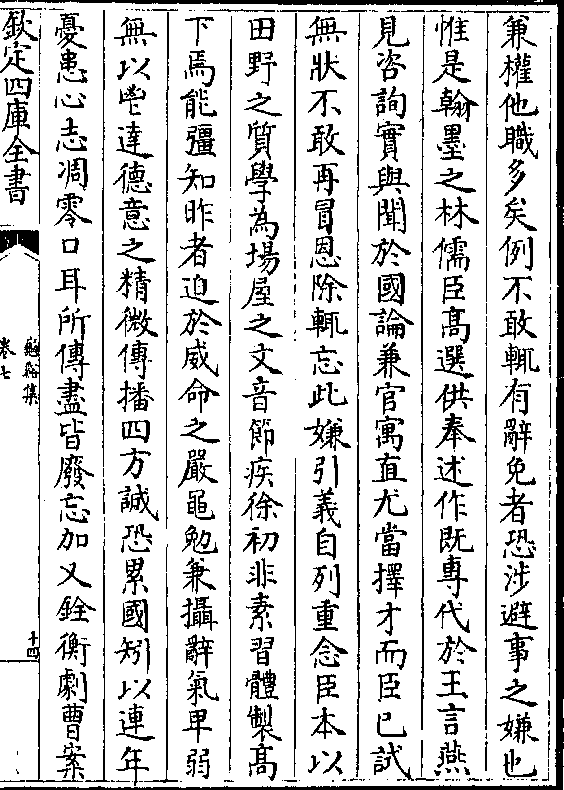 兼權他職多矣例不敢輒有辭免者恐涉避事之嫌也
惟是翰墨之林儒臣髙選供奉述作既専代於王言燕
見咨詢實與聞於國論兼官寓直尤當擇才而臣已試
無狀不敢再冒恩除輒忘此嫌引義自列重念臣本以
田野之質學為場屋之文音節疾徐初非素習體製髙
下焉能彊知昨者迫於威命之嚴黽勉兼攝辭氣卑弱
無以𤼵達德意之精微傳播四方誠恐累國矧以連年
憂患心志凋零口耳所傳盡皆廢忘加又銓衡劇曹案
欽定四庫全書
卷七
十四